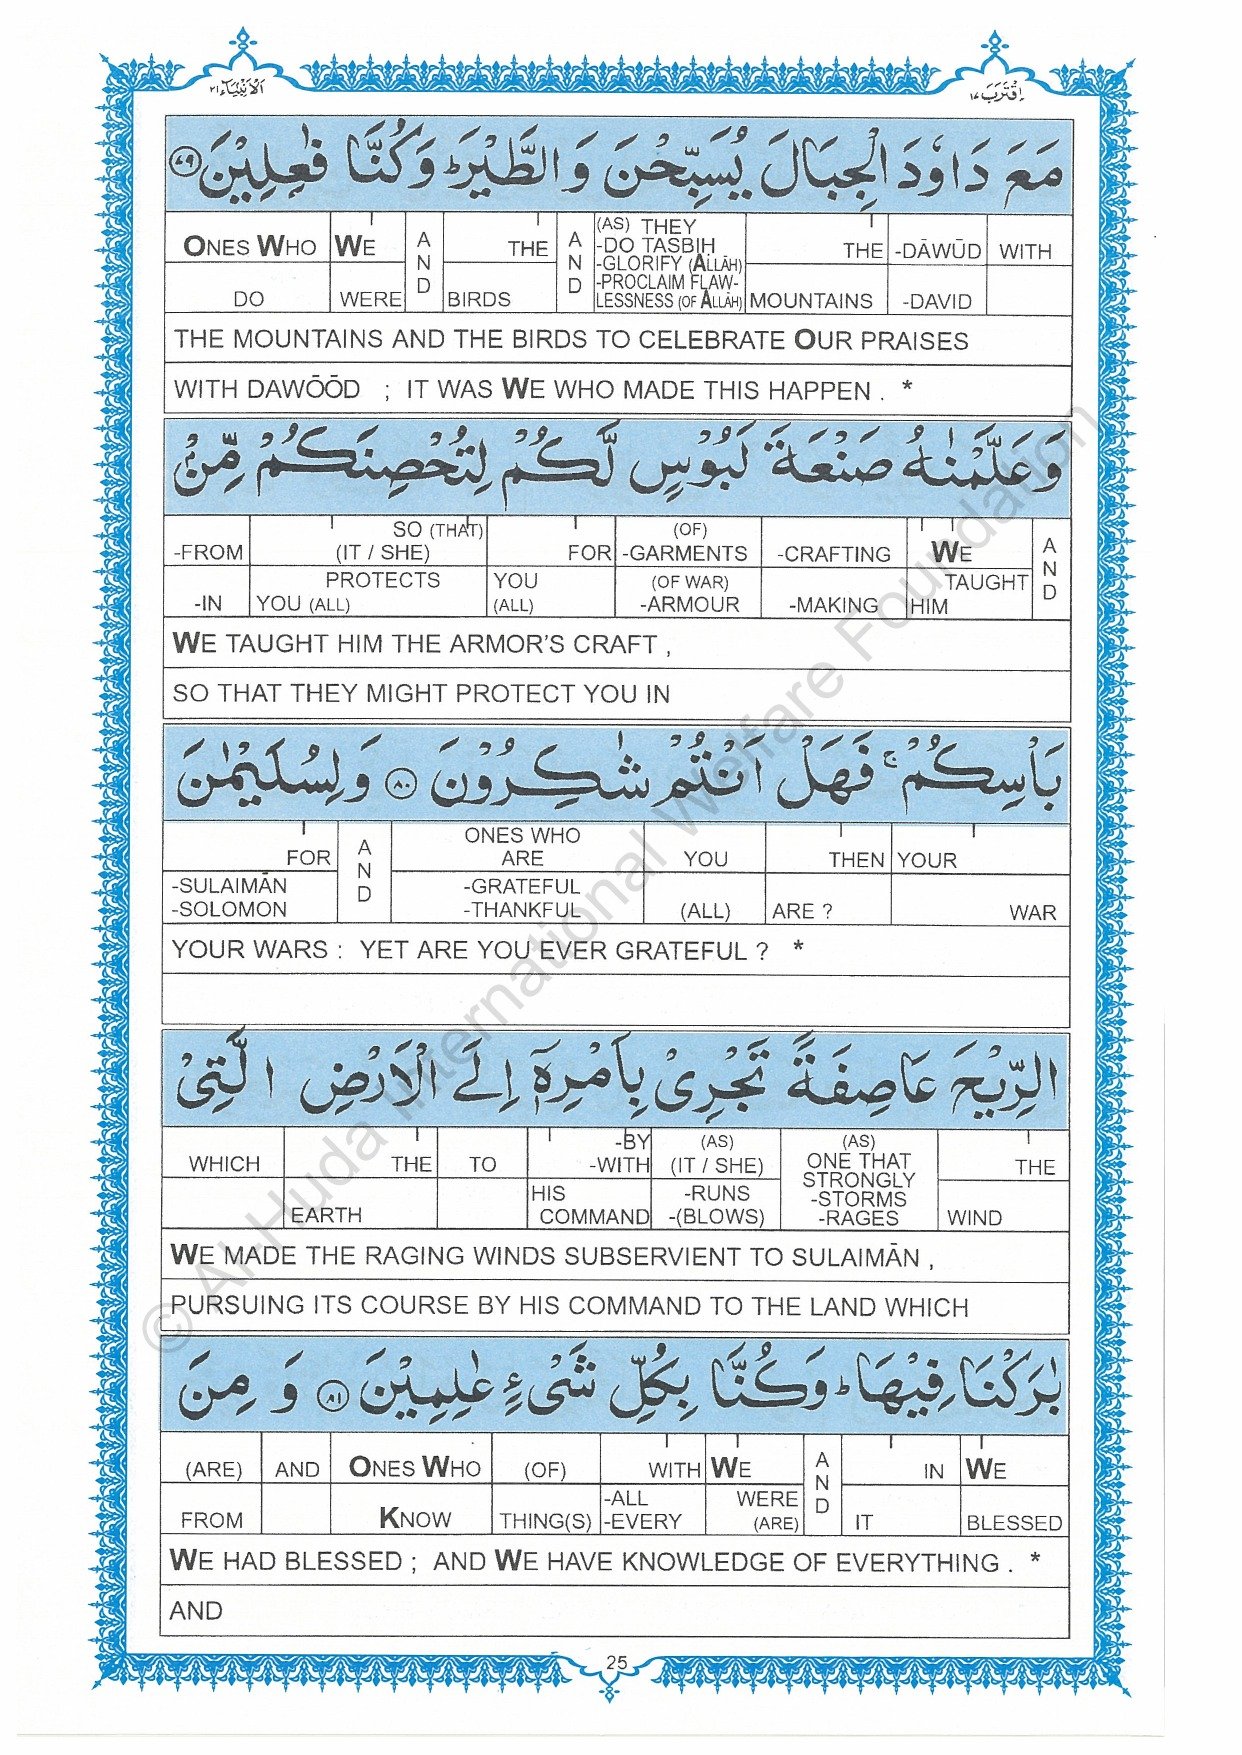 الأنبياء ٢١
اقترب ١٧
مَعَ دَاوٗدَ الْجِبَالَ يُسَبِّحْنَ وَ الطَّيْرَ ؕ وَ كُنَّا فٰعِلِيْنَ ٧٩
ONES WHO WE AND THE AND (AS) THEY -DO TASBIH -GLORIFY (ALLĀH) -PROCLAIM FLAW-LESSNESS (OF ALLĀH) THE -DĀWŪD WITH
DO WERE BIRDS MOUNTAINS -DAVID
THE MOUNTAINS AND THE BIRDS TO CELEBRATE OUR PRAISES
WITH DAWŌŌD ; IT WAS WE WHO MADE THIS HAPPEN . *
وَ عَلَّمْنٰهُ صَنْعَةَ لَبُوْسٍ لَّكُمْ لِتُحْصِنَكُمْ مِّنْۢ
-FROM SO (THAT) (IT / SHE) FOR (OF) -GARMENTS -CRAFTING WE AND
-IN PROTECTS YOU (ALL) YOU (ALL) (OF WAR) -ARMOUR -MAKING TAUGHT HIM
WE TAUGHT HIM THE ARMOR'S CRAFT ,
SO THAT THEY MIGHT PROTECT YOU IN
بَاْسِكُمْ ۚ فَهَلْ اَنْتُمْ شٰكِرُوْنَ ٨٠ وَ لِسُلَيْمٰنَ
FOR AND ONES WHO ARE YOU THEN YOUR
-SULAIMĀN -SOLOMON -GRATEFUL -THANKFUL (ALL) ARE ? WAR
YOUR WARS : YET ARE YOU EVER GRATEFUL ? *
الرِّيْحَ عَاصِفَةً تَجْرِيْ بِاَمْرِهٖۤ اِلَى الْاَرْضِ الَّتِيْ
WHICH THE TO -BY -WITH (AS) (IT / SHE) (AS) ONE THAT STRONGLY -STORMS -RAGES THE
EARTH HIS COMMAND -RUNS -(BLOWS) WIND
WE MADE THE RAGING WINDS SUBSERVIENT TO SULAIMĀN ,
PURSUING ITS COURSE BY HIS COMMAND TO THE LAND WHICH
بٰرَكْنَا فِيْهَا ؕ وَ كُنَّا بِكُلِّ شَيْءٍ عٰلِمِيْنَ ٨١ وَ مِنَ
(ARE) AND ONES WHO (OF) WITH WE AND IN WE
FROM KNOW THING(S) -ALL -EVERY WERE (ARE) IT BLESSED
WE HAD BLESSED ; AND WE HAVE KNOWLEDGE OF EVERYTHING . *
AND
25
© Al-Huda International Welfare Foundation